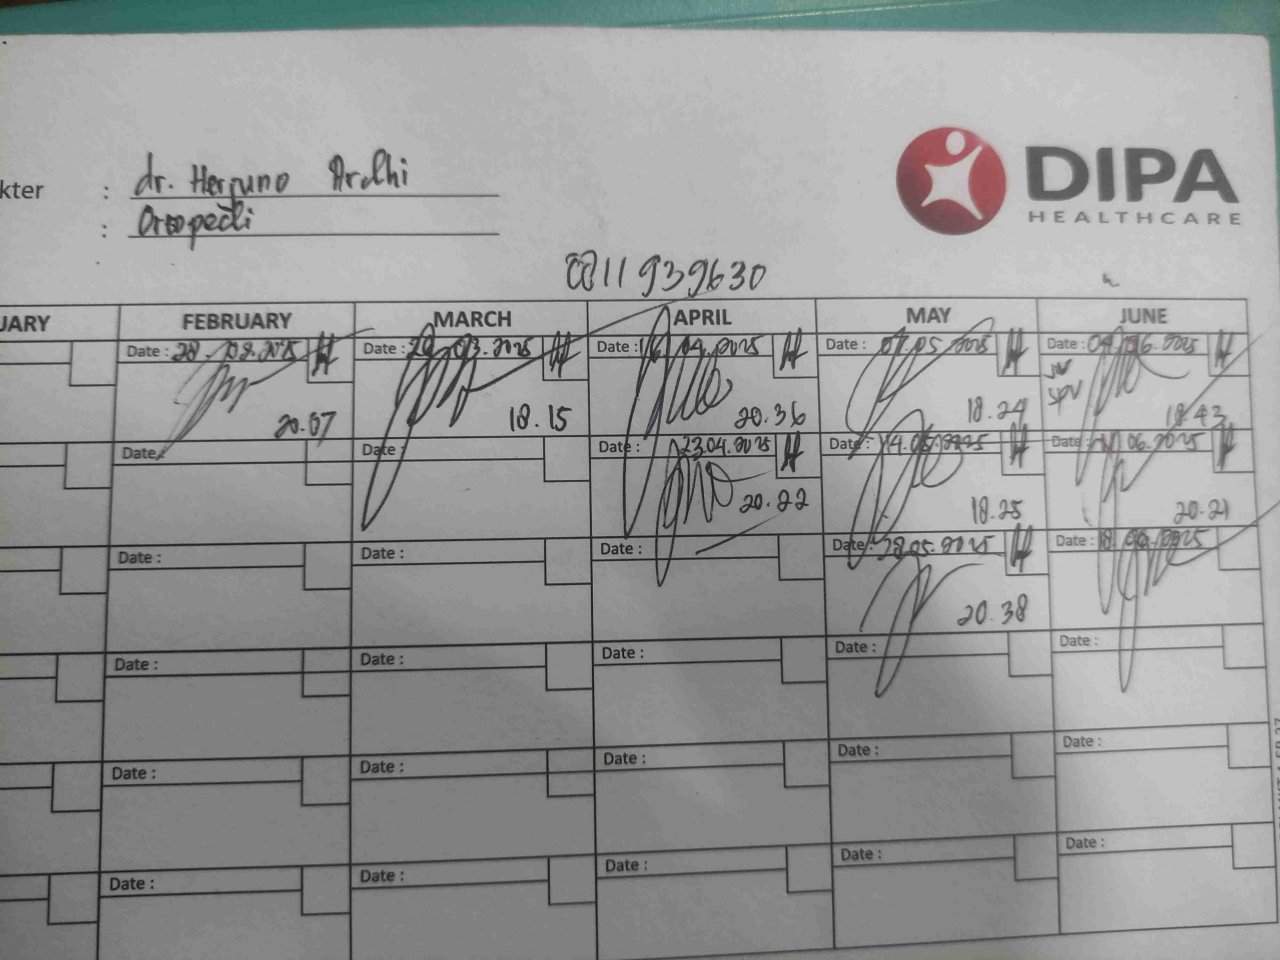 kter : dr. Heruno Ardhi
: Ortopedi
:
DIPA
HEALTHCARE
0811 939630
UARY FEBRUARY MARCH APRIL MAY JUNE
Date : 28. 02.2025 H Date : 20 03.2025 H Date : 04.2025 H Date : 07.05 2025 H Date : 04.06.2025 H
SPV
20.07 18.15 20.36 18.29 18.43
Date Date Date : 23.04.2025 H Date : 14.05.2025 H Date : 06.2025 H
20.22 18.25 20.21
Date : Date : Date : Date : 28.05.2025 H Date : 18.06.2025
20.38
Date : Date : Date : Date : Date :
Date : Date : Date : Date : Date :
Date : Date : Date : Date : Date :